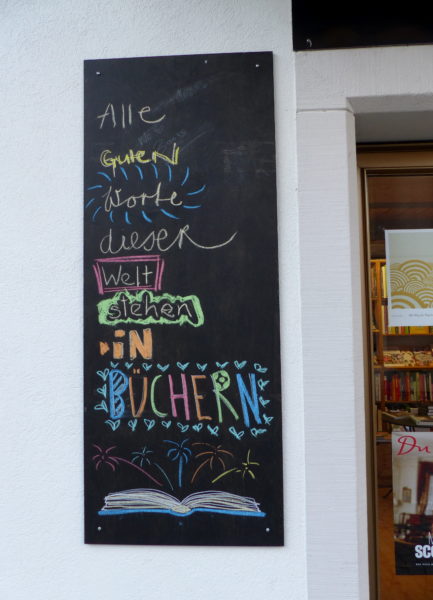 Alle
Guten
Worte
dieser
Welt
stehen
in
BÜCHERN
Du